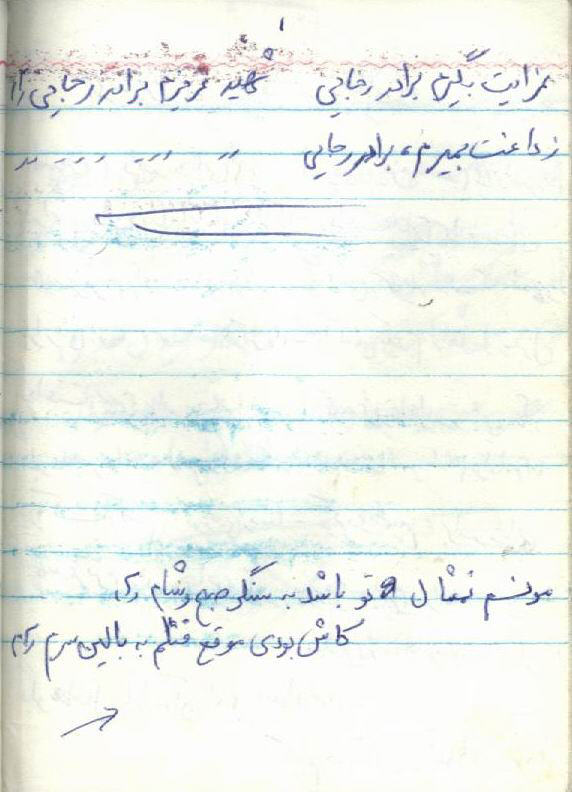 ۱
عزایت بگیرم برادر رجایی شهید عزیزم برادر رجایی
ز داغت بمیرم، برادر رجایی
مونسم تمثال تو باشد به سنگر صبح و شام
کاش بودی موقع قتلم به بالین سرم